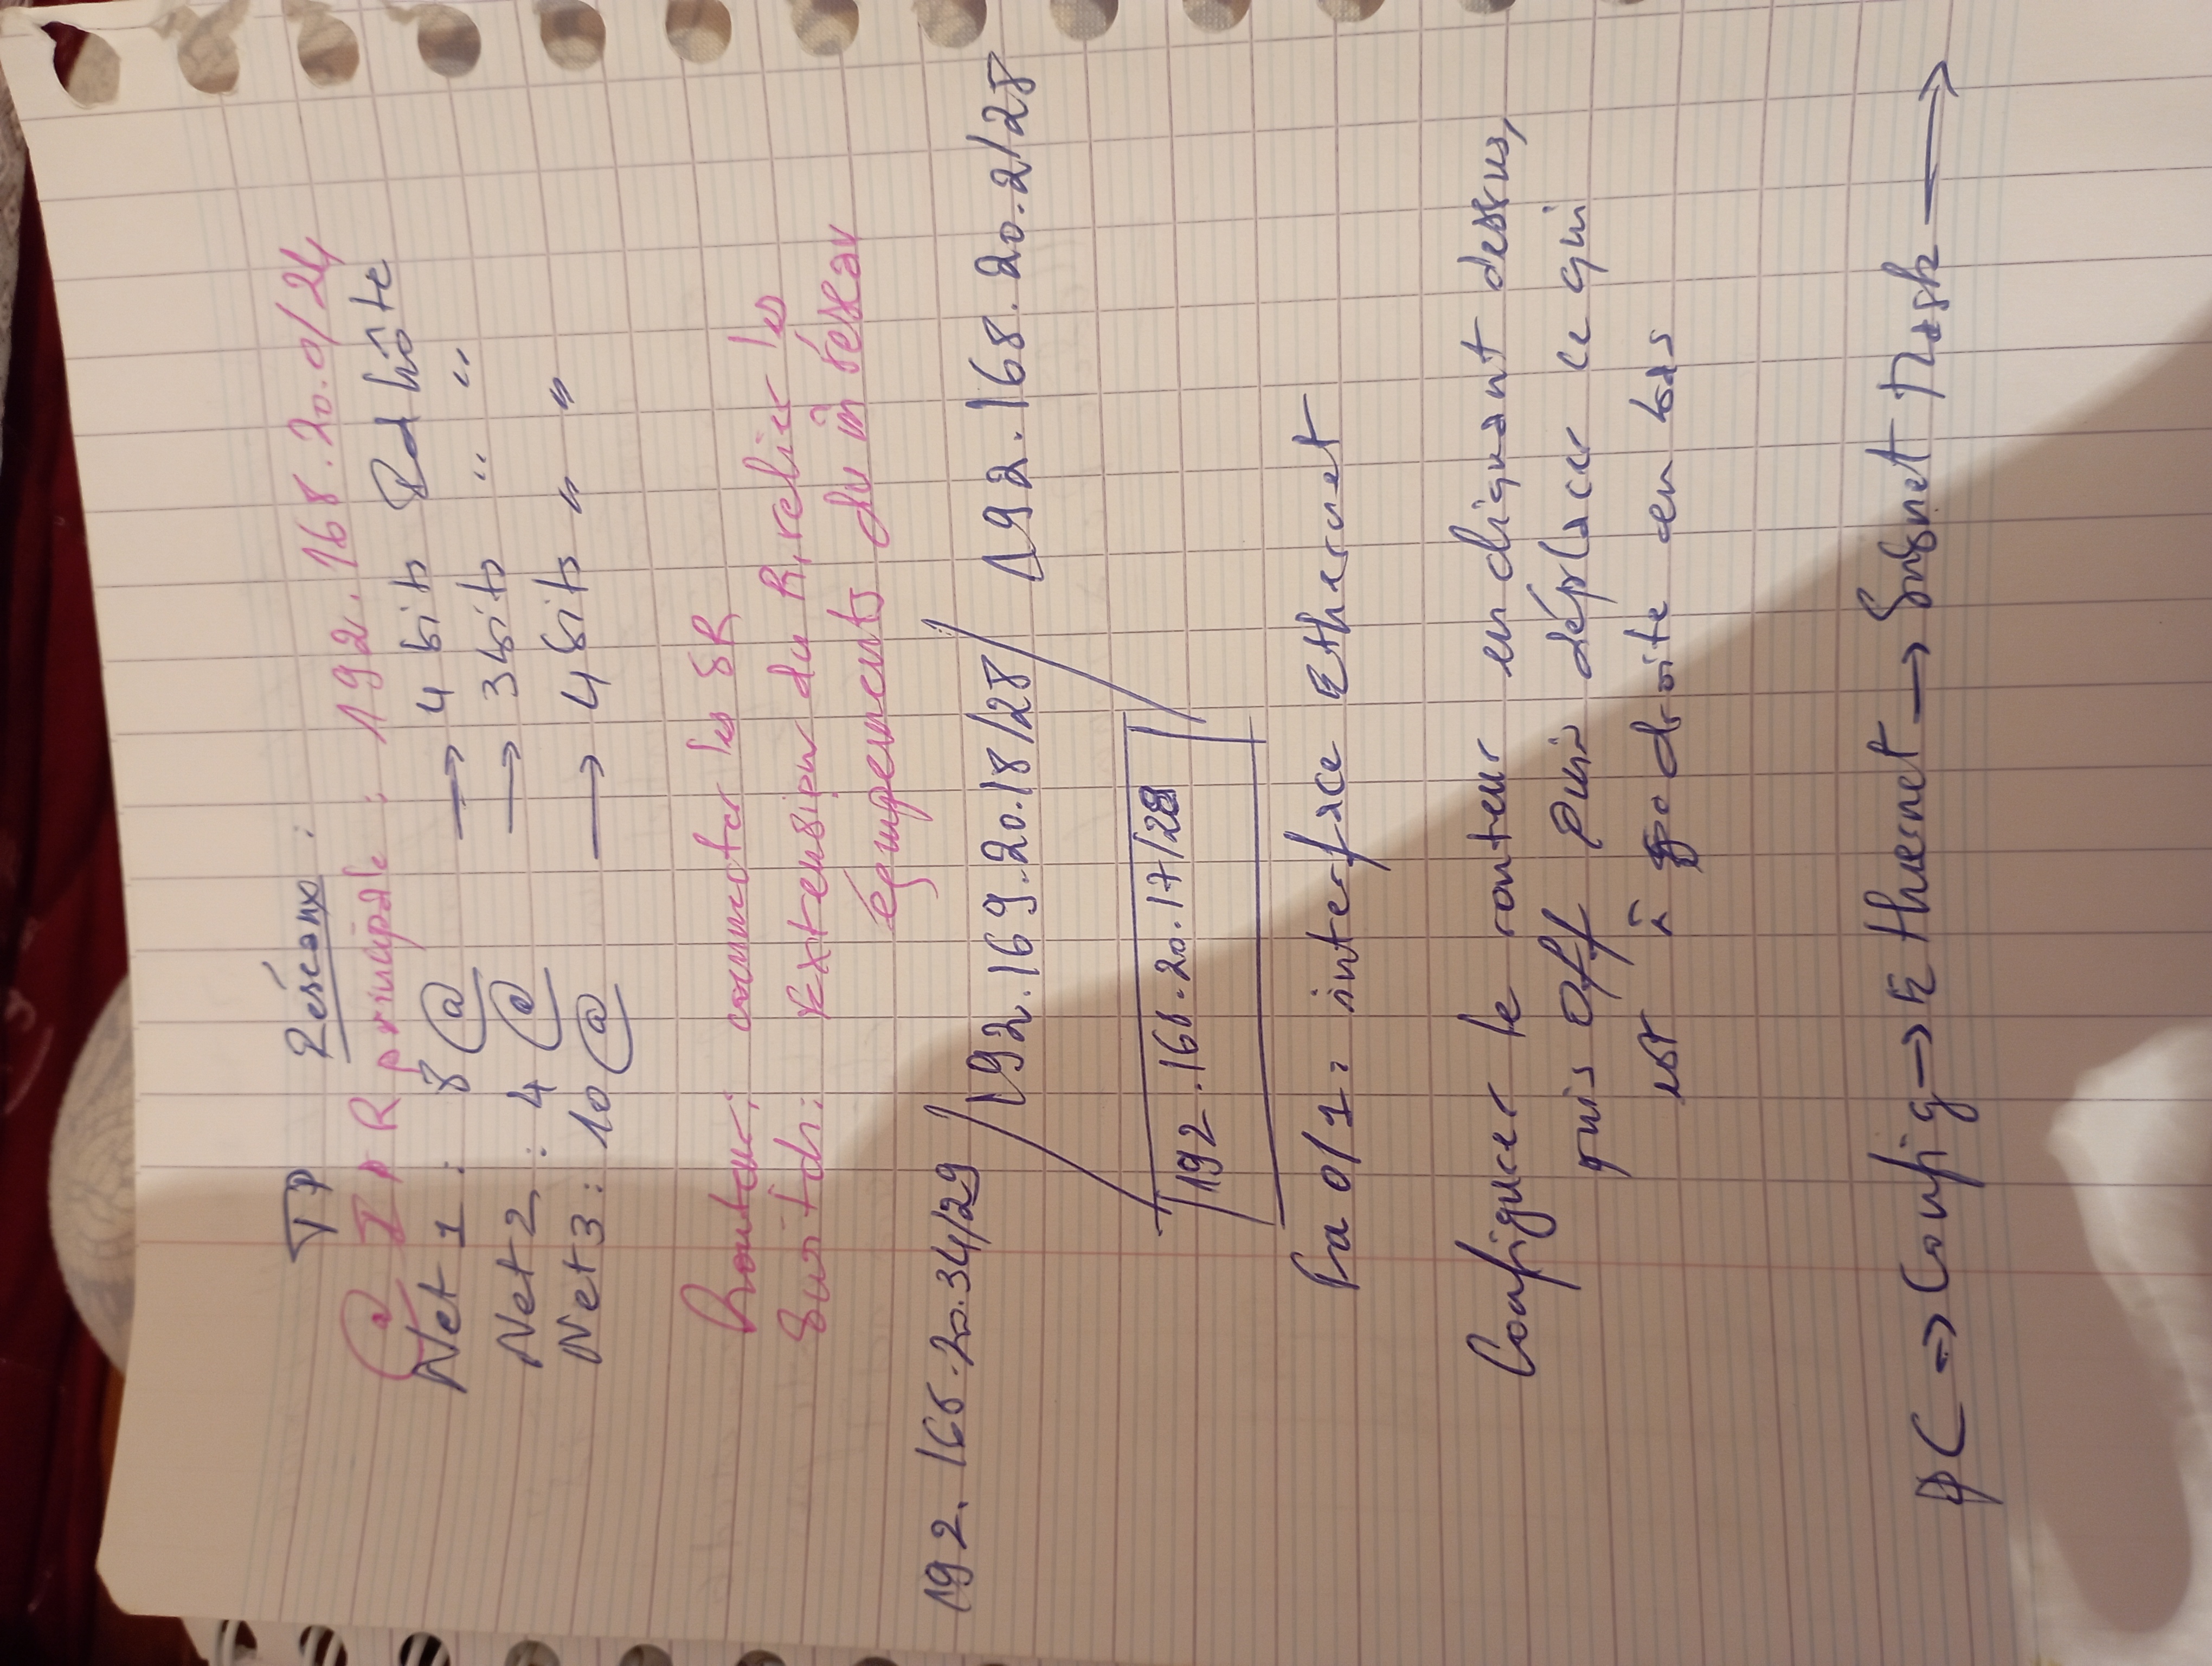 TP Réseaux :
@ IP Rprincipale : 192.168.20.0/24
Net 1 : 8 @ → 4 bits Rd hôte
Net 2 : 4 @ → 3 bits " "
Net 3 : 10 @ → 4 bits " "
Routeur : connecter les SR
Switch : extension du R, relier les
équipements du m̂ réseau
192.168.20.34/29 / 192.169.20.18/28 / 192.168.20.2/28
/ 192.168.20.17/28 /
Fa 0/1 : interface Ethernet
Configurer le routeur en cliquant dessus,
puis Off puis déplacer ce qui
est à droite en bas
PC → Config → Ethernet → Subnet Mask →